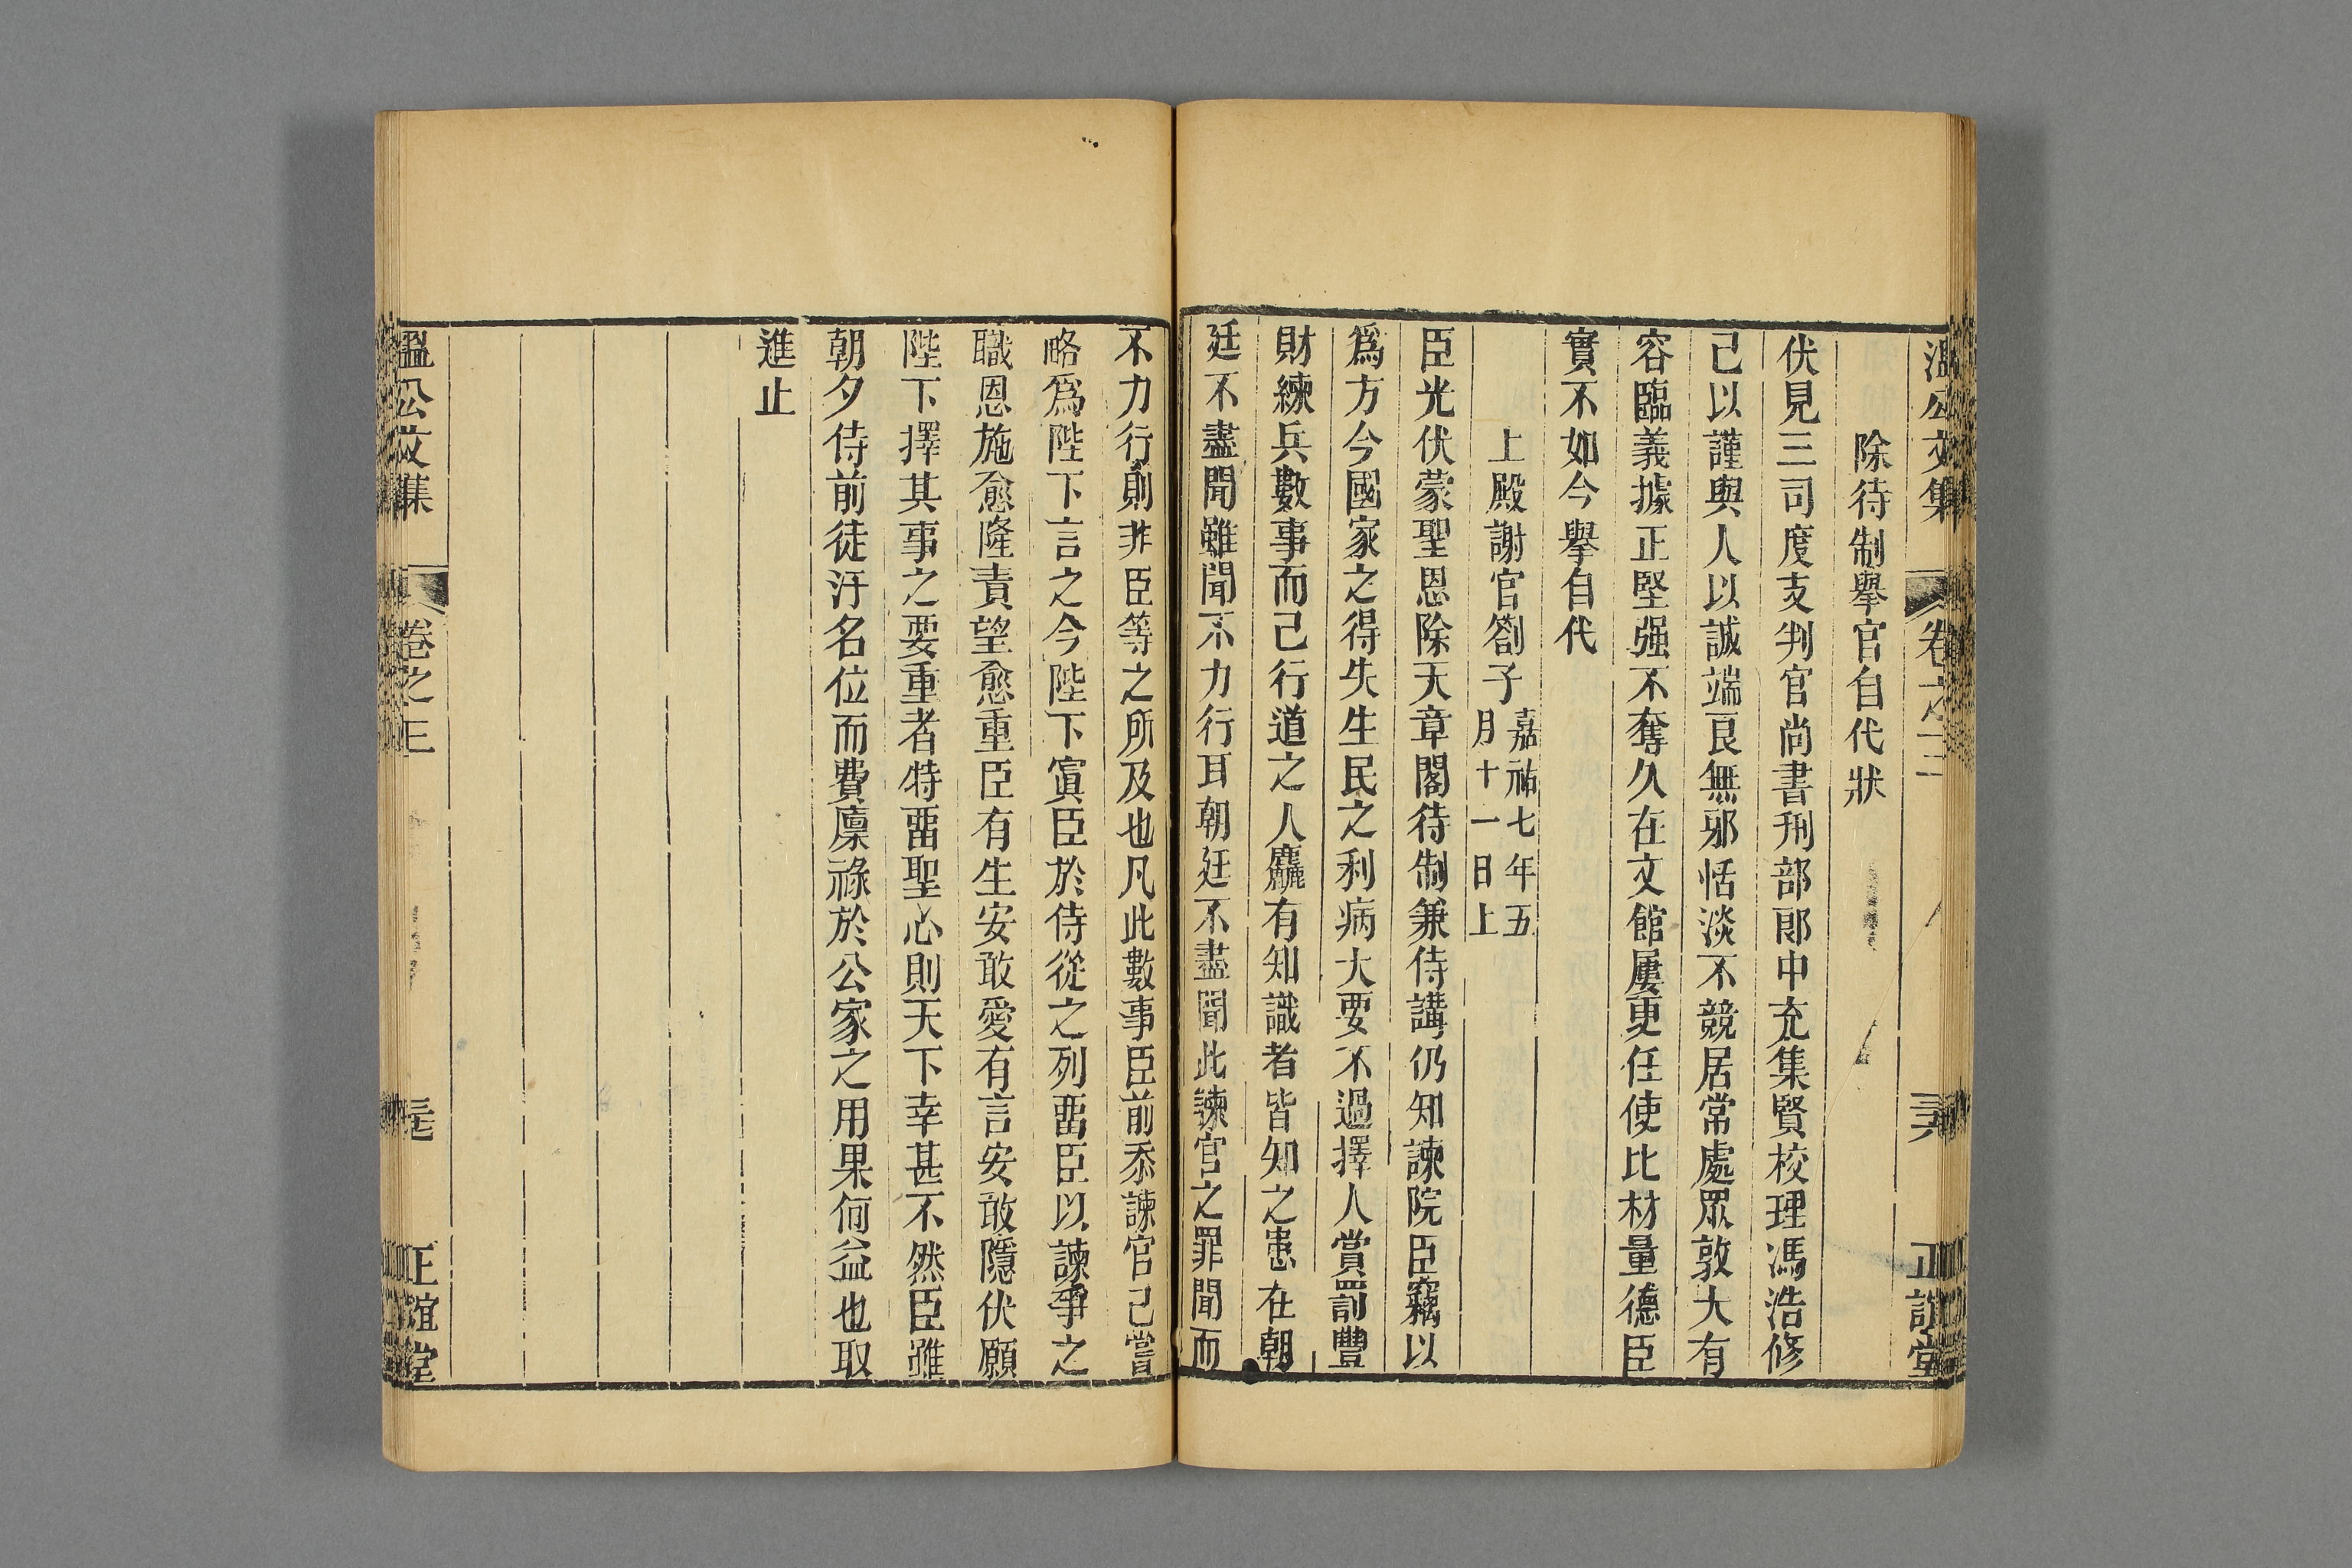 溫公文集 卷之三 三六 正誼堂
除待制舉官自代狀
伏見三司度支判官尚書刑部郎中充集賢校理馮浩修
己以謹與人以誠端良無邪恬淡不競居常處眾敦大有
容臨義據正堅强不奪久在文館屢更任使比材量德臣
實不如今舉自代
上殿謝官劄子嘉祐七年五
月十一日上
臣光伏蒙聖恩除天章閣待制兼侍講仍知諫院臣竊以
爲方今國家之得失生民之利病大要不過擇人賞罰豐
財練兵數事而己行道之人麤有知識者皆知之患在朝
廷不盡聞雖聞不力行耳朝廷不盡聞此諫官之罪聞而
不力行則非臣等之所及也凡此數事臣前忝諫官己嘗
略爲陛下言之今陛下寘臣於侍從之列畱臣以諫爭之
職恩施愈隆責望愈重臣有生安敢愛有言安敢隱伏願
陛下擇其事之要重者特畱聖心則天下幸甚不然臣雖
朝夕侍前徒汙名位而費廩祿於公家之用果何益也取
進止
溫公文集 卷之三 正誼堂